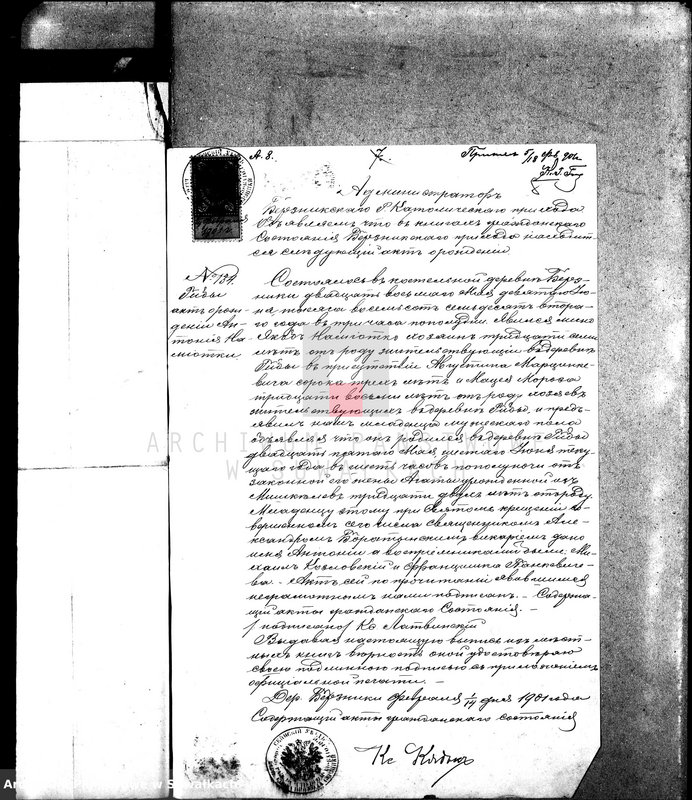 А. 8.
7.
5/18
Администраторъ
Бержникскаго Р Католическаго прихода
объявляетъ что въ книгахъ гражданскаго
состоянія Бержникскаго прихода находит-
ся слѣдующій актъ о рожденіи
№ 134.
Гибы
актъ о рож-
деніи Ан-
тонія На-
міотки
Состоялось въ костельной деревнѣ Берж-
ники двадцать восьмаго Мая девятаго Ію-
на тысяча восемьсотъ семьдесятъ второ-
го года въ три часа пополудни. Явился лично
Яковъ Наміотко хозяинъ тридцати семи
лѣтъ отъ роду жительствующій въ деревнѣ
Гибы въ присутствіи Августина Марцинке-
вича сорока трехъ лѣтъ и Мацея Мороза
тридцати восьми лѣтъ отъ роду хозяевъ
жительствующихъ въ деревнѣ Гибы, и предъ-
явилъ намъ младенца мужескаго пола
объявляя что онъ родился въ деревнѣ Гибы
двадцать пятаго Мая шестаго Іюня теку-
щаго года въ шесть часовъ пополуночи отъ
законной его жены Агаты урожденной изъ
тридцати двухъ лѣтъ отъ роду.
Младенцу этому при Святомъ крещеніи со-
вершенномъ сего числа священникомъ Але-
ксандромъ викаріемъ дано
имя Антоній а воспріемниками были: Ми-
хаилъ Козловскій и Францишка Панкевиче-
ва. - Актъ сей по прочтеніи явившимся
неграмотнымъ нами подписанъ. - Содержа-
щій акты гражданскаго Состоянія. -
/подписано/ Кс Литвинскій
Выдавая настоящую выпись изъ мѣст-
ныхъ книгъ вѣрность оной удостовѣряю
своею подлинною подписью съ приложеніемъ
оффиціальной печати. -
Дер. Бержники февраля 1/14 дня 1901 года
Содержащій акты гражданскаго состоянія
Кс
ARCHIWUM PAŃSTWOWE
W SUWAŁKACH
w Suwałkach